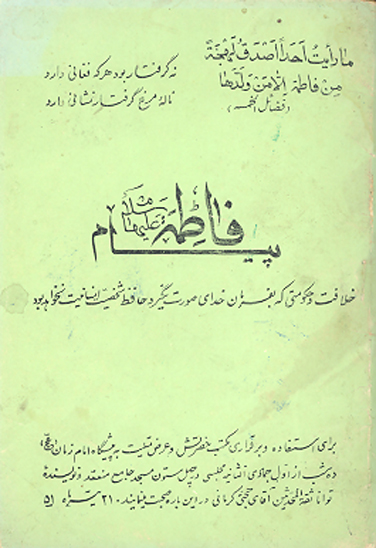 ما رأیت احداً اصدق لهجةً
من فاطمة الا من ولدها
(فضائل الخمسه)
نه گرفتار بود هر که فغانی دارد
ناله مرغ گرفتار نشانی دارد
پیام فاطمه سلام الله علیها
خلافت و حکومتی که بفرمان خدای صورت نگیرد حافظ شخصیت انسانیت نخواهد بود
برای استفاده و برقراری مکتب حضرتش و عرض تسلیت به پیشگاه امام زمان (عج)
ده شب از اول جمادی الثانیه مجلسی در چهل ستون مسجد جامع منعقد و نویسنده
توانا ثقة المحدثین آقای حجتی کرمانی در این باره صحبت مینمایند ۲۱ تیر ماه ۵۱